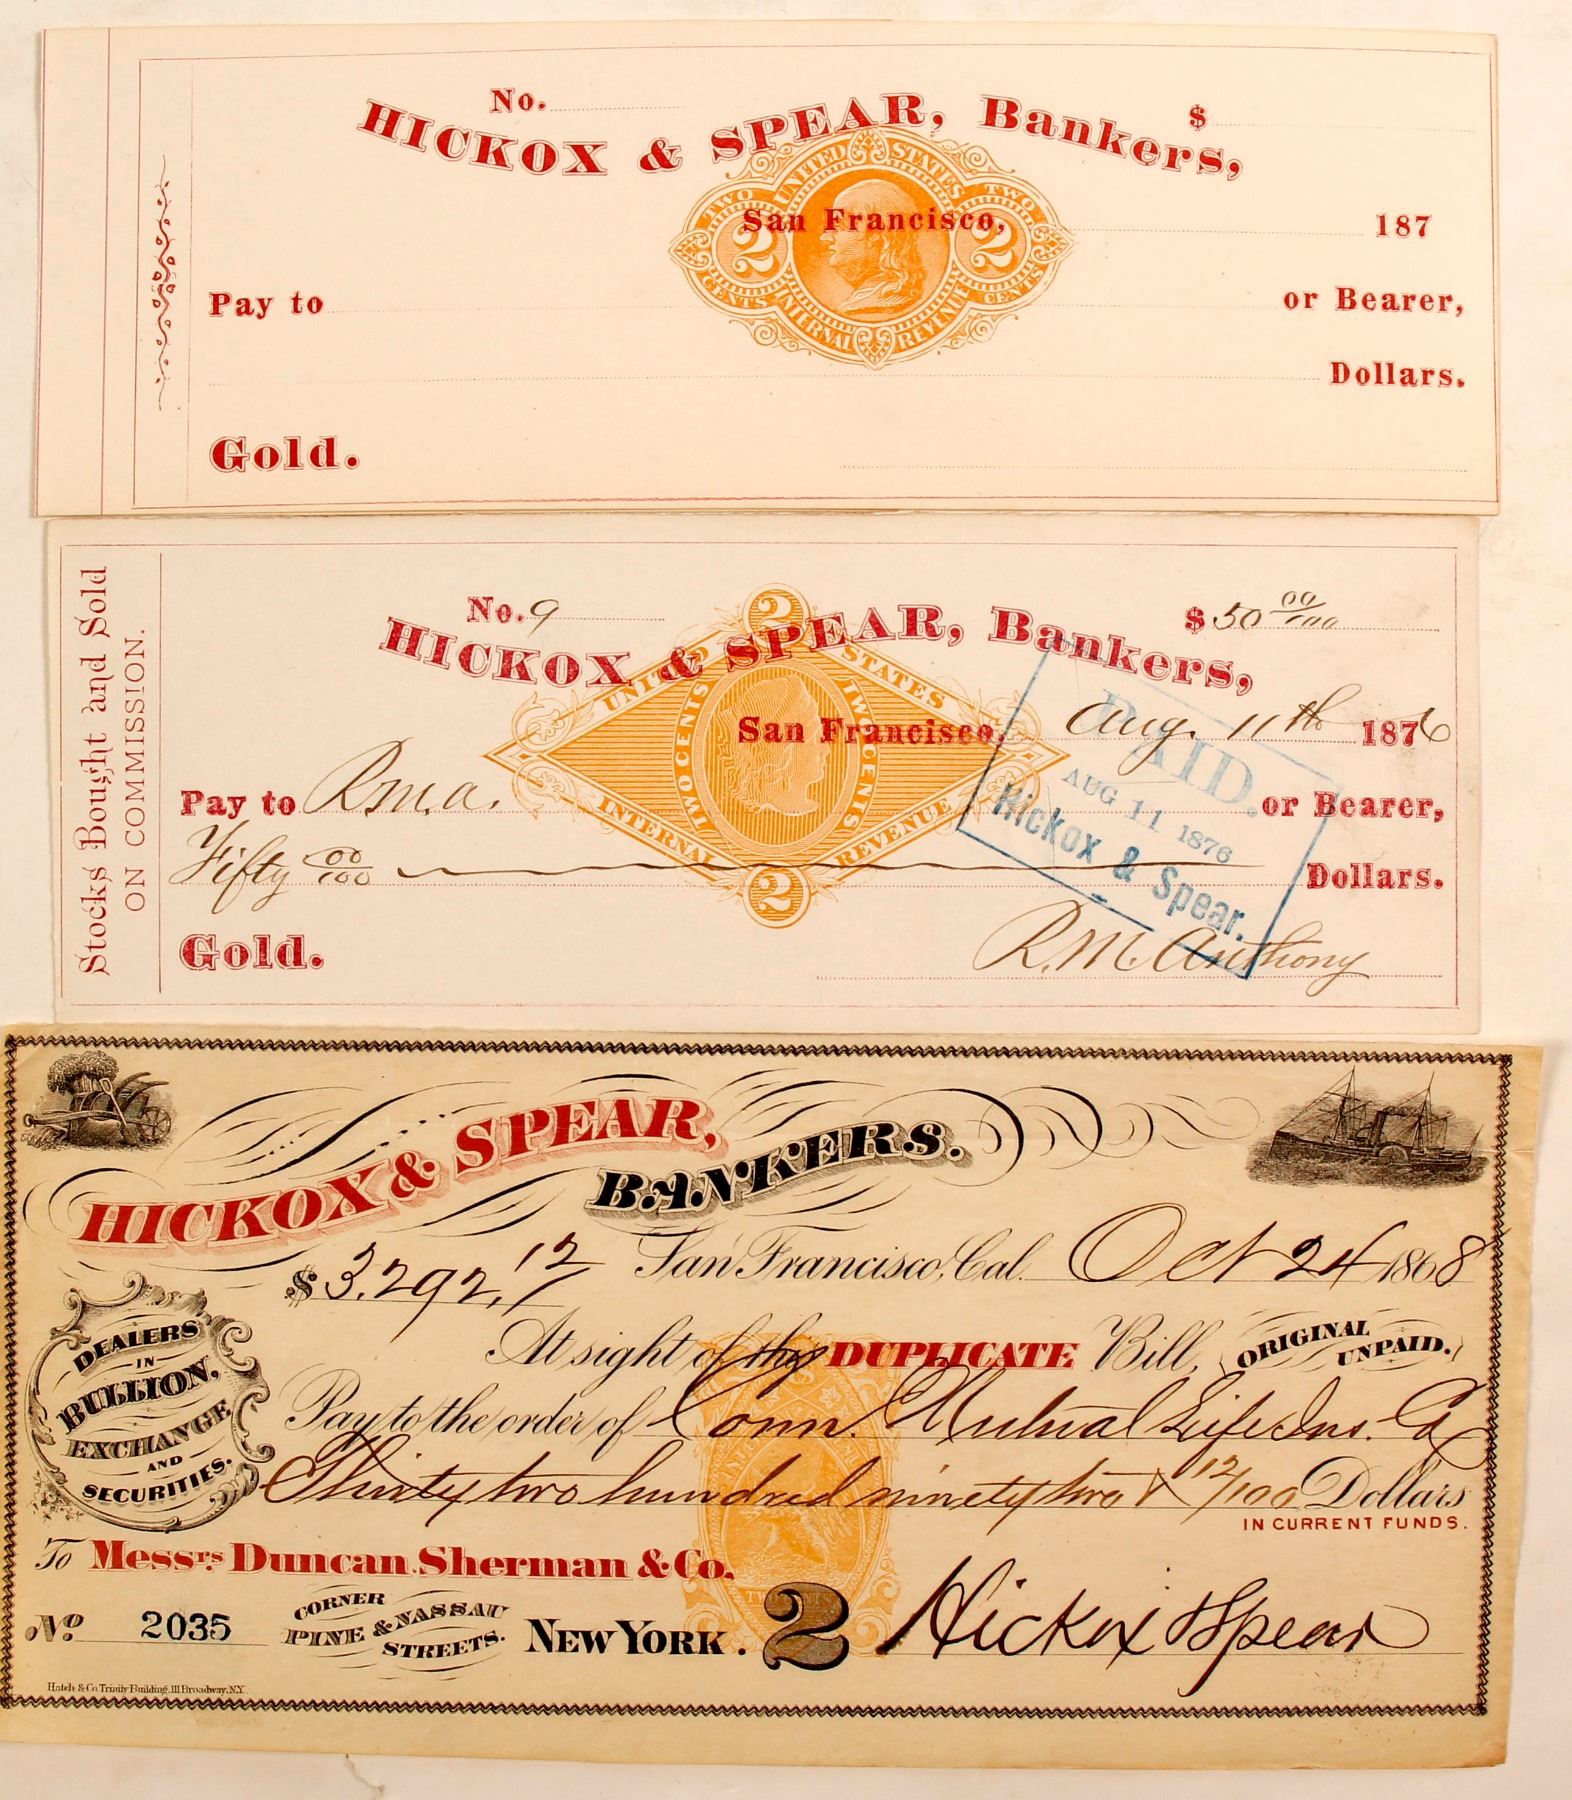 No.
HICKOX & SPEAR, Bankers,
$
UNITED STATES
TWO CENTS
TWO CENTS
2
2
INTERNAL REVENUE
San Francisco, 187
Pay to or Bearer,
Dollars.
Gold.
Stocks Bought and Sold
ON COMMISSION.
No. 9
HICKOX & SPEAR, Bankers,
$ 50 00/100
2
UNITED STATES
TWO CENTS
TWO CENTS
INTERNAL REVENUE
2
San Francisco, Aug. 11th 1876
PAID.
AUG 11 1876
Hickox & Spear.
Pay to R.M.A. or Bearer,
Fifty 00/100 Dollars.
Gold.
R. M. Anthony
HICKOX & SPEAR,
BANKERS.
$3,292,12/ San Francisco, Cal. Oct 24 1868
DEALERS
IN
BULLION,
EXCHANGE
AND
SECURITIES.
At sight of this DUPLICATE Bill, (ORIGINAL UNPAID.)
Pay to the order of Conn. Mutual Life Ins. Co
Thirty two hundred ninety two & 12/100 Dollars
IN CURRENT FUNDS.
To Messrs. Duncan Sherman & Co.
CORNER
PINE & NASSAU
STREETS.
NEW YORK.
No. 2035
2
Hickox & Spear
Hatch & Co. Trinity Building, 111 Broadway, N.Y.